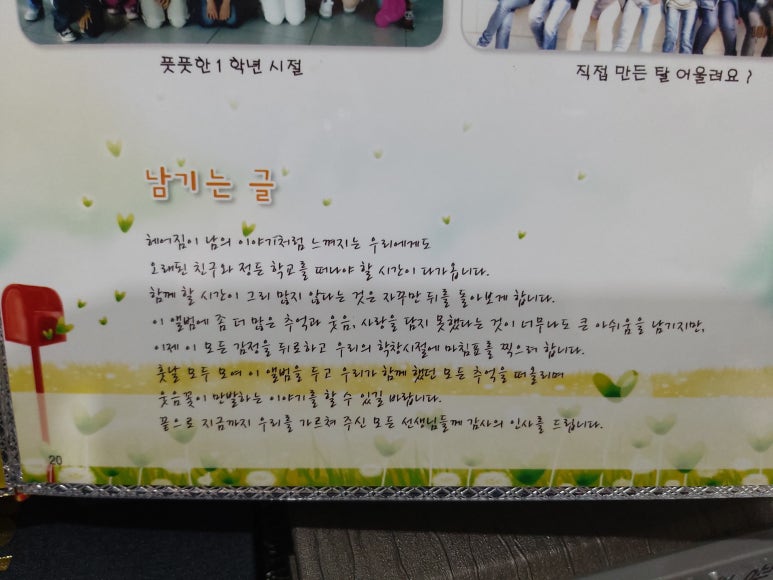 풋풋한 1학년 시절
직접 만든 탈 어울려요?
남기는 글
헤어짐이 남의 이야기처럼 느껴지는 우리에게도
오래된 친구와 정든 학교를 떠나야 할 시간이 다가옵니다.
함께 할 시간이 그리 많지 않다는 것은 자꾸만 뒤를 돌아보게 합니다.
이 앨범에 좀 더 많은 추억과 웃음, 사랑을 담지 못했다는 것이 너무나도 큰 아쉬움을 남기지만,
이제 이 모든 감정을 뒤로하고 우리의 학창시절에 마침표를 찍으려 합니다.
훗날 모두 모여 이 앨범을 두고 우리가 함께 했던 모든 추억을 떠올리며
웃음꽃이 만발하는 이야기를 할 수 있길 바랍니다.
끝으로 지금까지 우리를 가르쳐 주신 모든 선생님들께 감사의 인사를 드립니다.
20